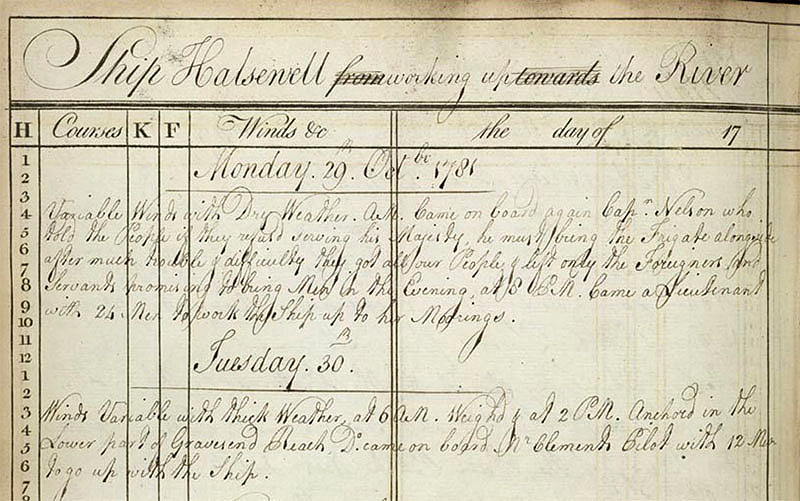 Ship Halsewell from working up towards the River
H Courses K F Winds &c the day of 17
1
Monday. 29th. Octobr. 1781
2
3
Variable Winds with Dry Weather. AM. Came on board again Capn. Nelson who
4
told the People if they refusd serving his Majesty, he must bring the Frigate alongside
5
6
after much trouble & difficulty they got all our People & left only the Foreigners and
7
8
Servants promising to bring Men in the Evening, at 8 P.M. Came a Lieutenant
9
with 24 Men to work the Ship up to her Moorings.
10
11
Tuesday. 30th.
12
1
2
Winds Variable with thick Weather, at 6 AM. Weighd & at 2 PM. Anchord in the
3
4
Lower part of Gravesend Reach. Do. came on board Mr Clements Pilot with 12 Men
5
6
to go up with the Ship.
7
8